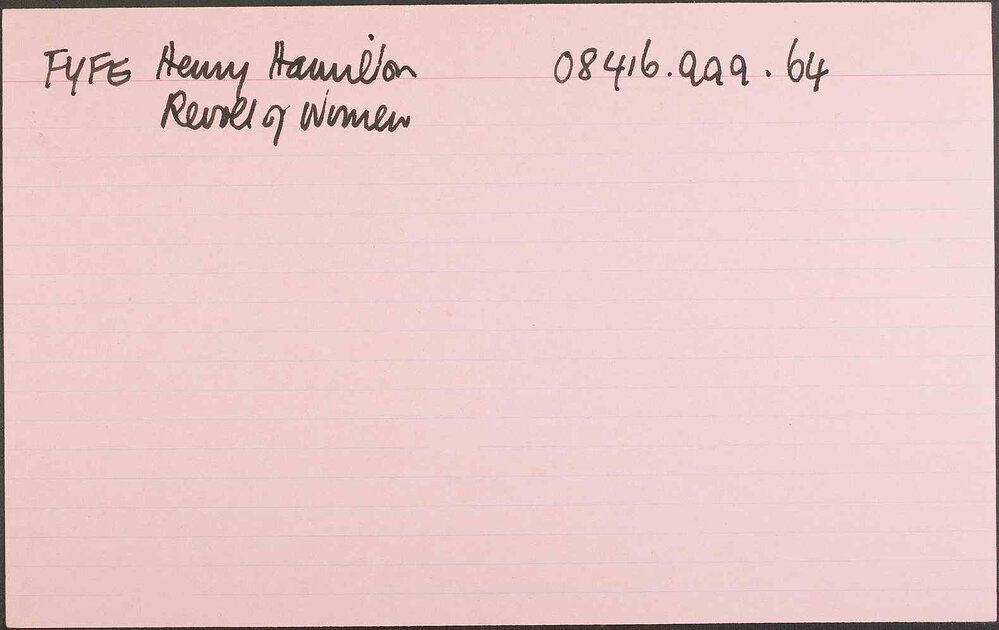 FYFE Henry Hamilton 08416.aaa.64
Revolt of Women